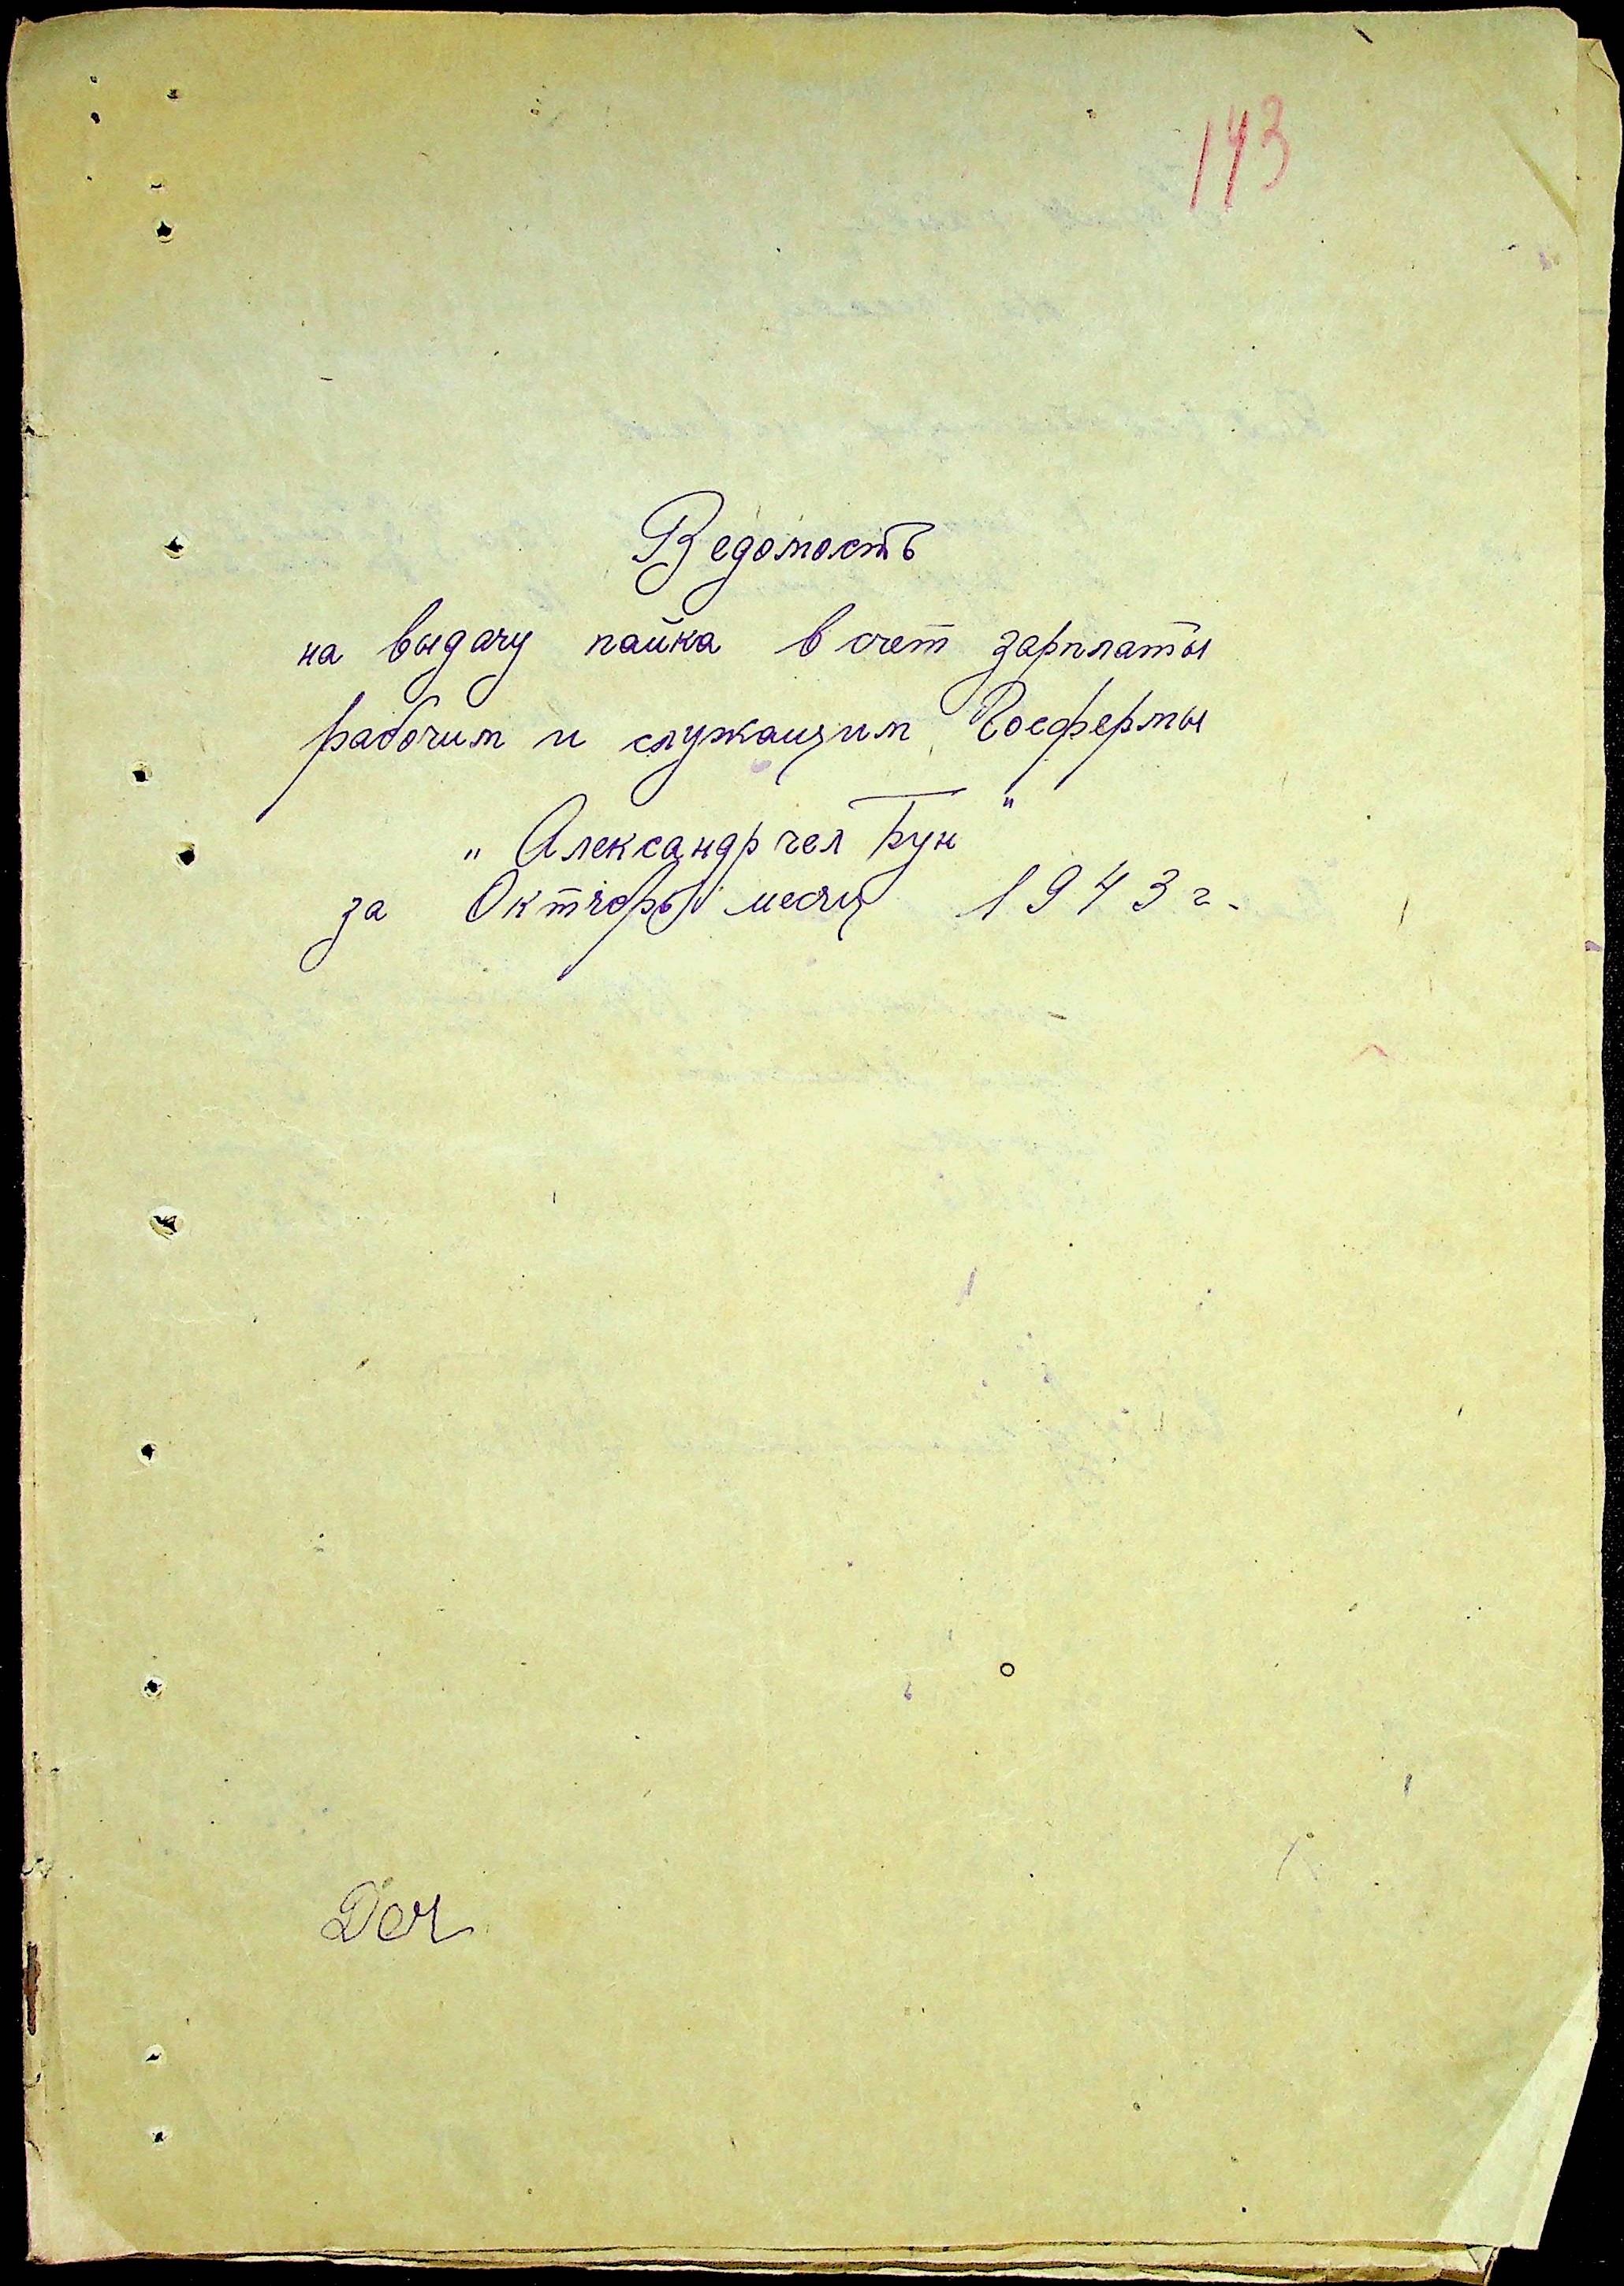 143
Ведомость
на выдачу пайка в счет зарплаты
рабочим и служащим Госфермы
„Александр чел Бун"
за Октябрь месяц 1943 г.